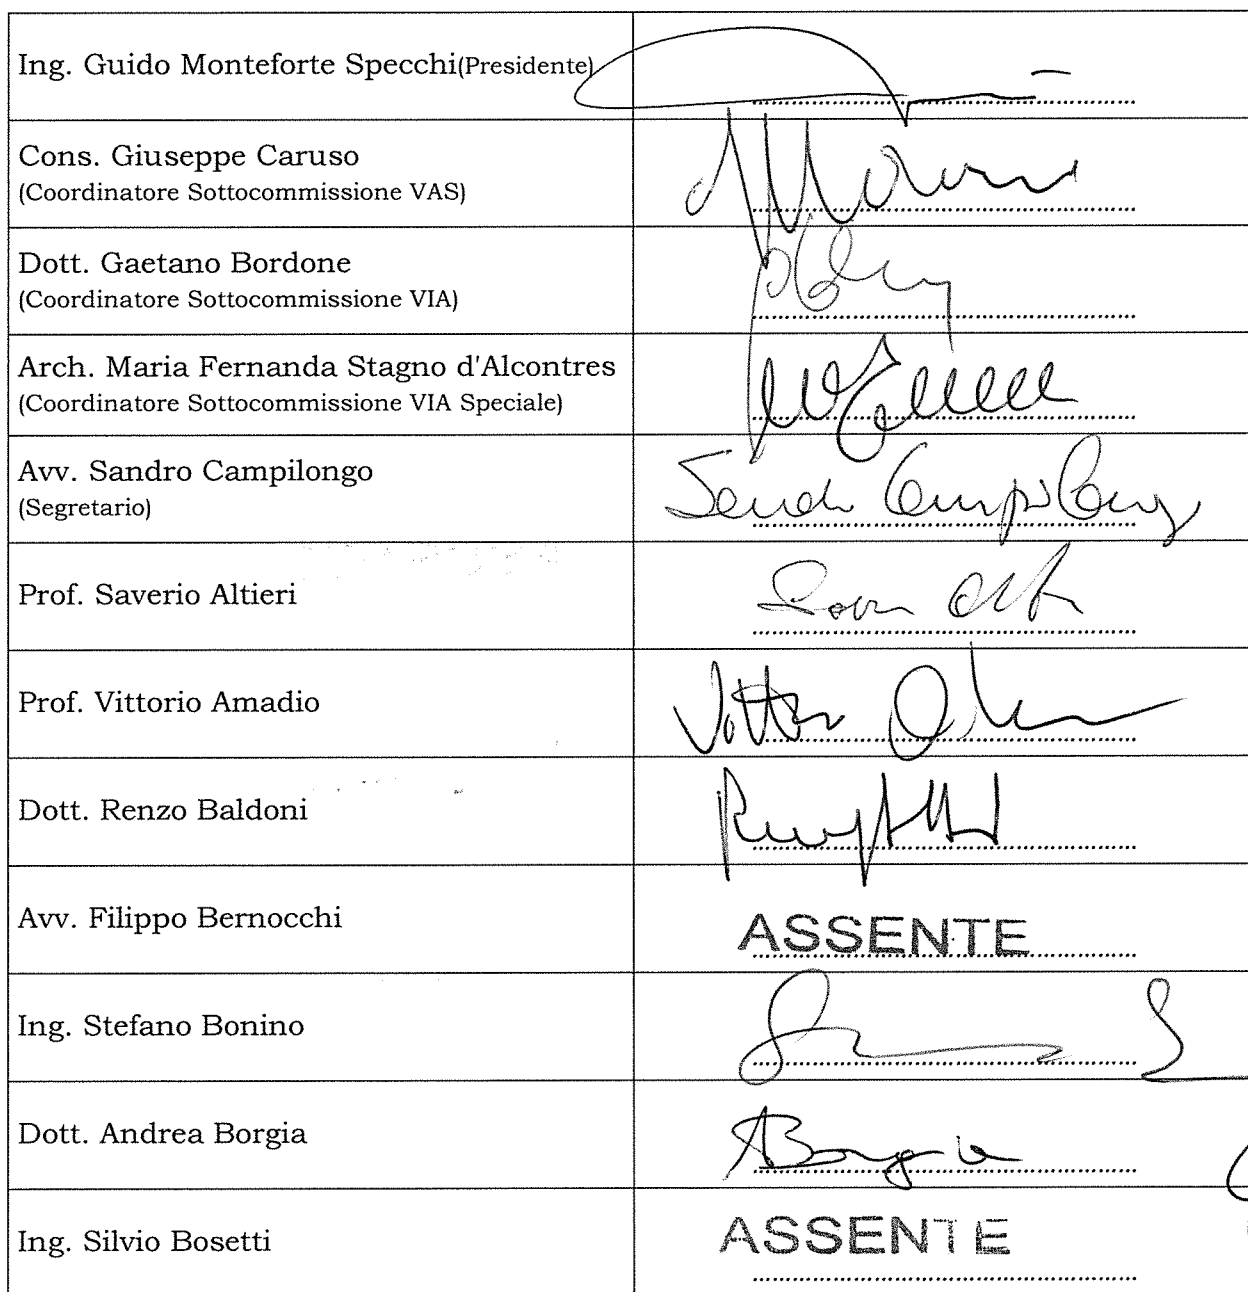 Ing. Guido Monteforte Specchi(Presidente)
Cons. Giuseppe Caruso
(Coordinatore Sottocommissione VAS)
Dott. Gaetano Bordone
(Coordinatore Sottocommissione VIA)
Arch. Maria Fernanda Stagno d'Alcontres
(Coordinatore Sottocommissione VIA Speciale)
Avv. Sandro Campilongo
(Segretario)
Sandro Campilongo
Prof. Saverio Altieri
Prof. Vittorio Amadio
Dott. Renzo Baldoni
Avv. Filippo Bernocchi
ASSENTE
Ing. Stefano Bonino
Dott. Andrea Borgia
ABorgia
Ing. Silvio Bosetti
ASSENTE